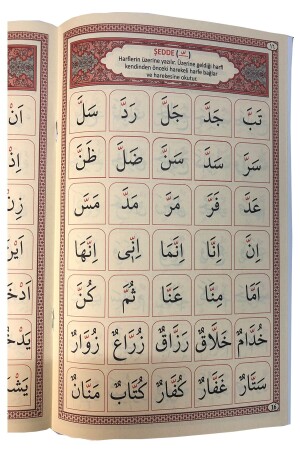 ŞEDDE ( ـّـ )
Harflerin üzerine yazılır. Üzerine geldiği harfi
kendinden önceki harekeli harfe bağlar
ve harekesine okutur.
تَبَّ جَدَّ جَلَّ رَدَّ سَلَّ
سَرَّ سَدَّ سَنَّ ضَلَّ ظَنَّ
عَدَّ فَرَّ مَرَّ مَدَّ مَسَّ
اِنَّ اِنَّا اِنَّمَا اِنّٖى اِنَّهَا
اَمَّا مِنَّا عَنَّا ثُمَّ كُنَّ
خُدَّامٌ خَلَّاقٌ رَزَّاقٌ زُرَّاعٌ زُوَّارٌ
سَتَّارٌ غَفَّارٌ كُفَّارٌ كُتَّابٌ مَنَّانٌ
16